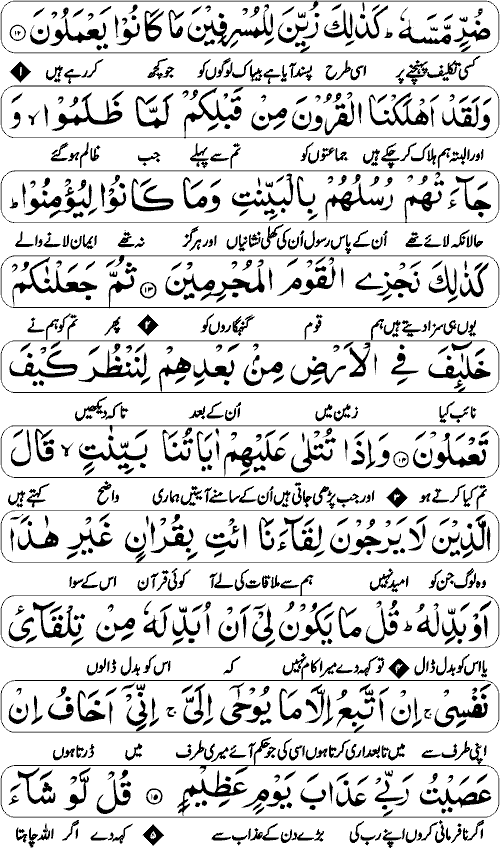 ضُرٍّ مَّسَّهٗ ؕ كَذٰلِكَ زُيِّنَ لِلْمُسْرِفِيْنَ مَا كَانُوْا يَعْمَلُوْنَ ﴿۱۲﴾
کسی تکلیف پہنچنے پر اسی طرح پسند آیا ہے بیباک لوگوں کو جو کچھ کر رہے ہیں ۱
وَلَقَدْ اَهْلَكْنَا الْقُرُوْنَ مِنْ قَبْلِكُمْ لَمَّا ظَلَمُوْا ۙ وَ
اور البتہ ہم ہلاک کر چکے ہیں جماعتوں کو تم سے پہلے جب ظالم ہو گئے
جَآءَتْهُمْ رُسُلُهُمْ بِالْبَيِّنٰتِ وَمَا كَانُوْا لِيُؤْمِنُوْا ؕ
حالانکہ لائے تھے اُن کے پاس رسول اُن کی کھلی نشانیاں اور ہرگز نہ تھے ایمان لانے والے
كَذٰلِكَ نَجْزِي الْقَوْمَ الْمُجْرِمِيْنَ ﴿۱۳﴾ ثُمَّ جَعَلْنٰكُمْ
یوں ہی سزا دیتے ہیں ہم قوم گنہگاروں کو ۲ پھر تم کو ہم نے
خَلٰٓئِفَ فِي الْاَرْضِ مِنْۢ بَعْدِهِمْ لِنَنْظُرَ كَيْفَ
نائب کیا زمین میں اُن کے بعد تاکہ دیکھیں
تَعْمَلُوْنَ ﴿۱۴﴾ وَاِذَا تُتْلٰى عَلَيْهِمْ اٰيَاتُنَا بَيِّنٰتٍ ۙ قَالَ
تم کیا کرتے ہو ۳ اور جب پڑھی جاتی ہیں اُن کے سامنے آیتیں ہماری واضح کہتے ہیں
الَّذِيْنَ لَا يَرْجُوْنَ لِقَآءَنَا ائْتِ بِقُرْاٰنٍ غَيْرِ هٰذَآ
وہ لوگ جن کو امید نہیں ہم سے ملاقات کی لے آ کوئی قرآن اس کے سوا
اَوْ بَدِّلْهُ ؕ قُلْ مَا يَكُوْنُ لِيْٓ اَنْ اُبَدِّلَهٗ مِنْ تِلْقَآئِ
یا اس کو بدل ڈال ۴ تو کہہ دے میرا کام نہیں کہ اس کو بدل ڈالوں
نَفْسِيْ ۚ اِنْ اَتَّبِعُ اِلَّا مَا يُوْحٰٓى اِلَيَّ ۚ اِنِّيْٓ اَخَافُ اِنْ
اپنی طرف سے میں تابعداری کرتا ہوں اسی کی جو حکم آئے میری طرف میں ڈرتا ہوں
عَصَيْتُ رَبِّيْ عَذَابَ يَوْمٍ عَظِيْمٍ ﴿۱۵﴾ قُلْ لَّوْ شَآءَ
اگر نافرمانی کروں اپنے رب کی بڑے دن کے عذاب سے ۵ کہہ دے اگر اللہ چاہتا